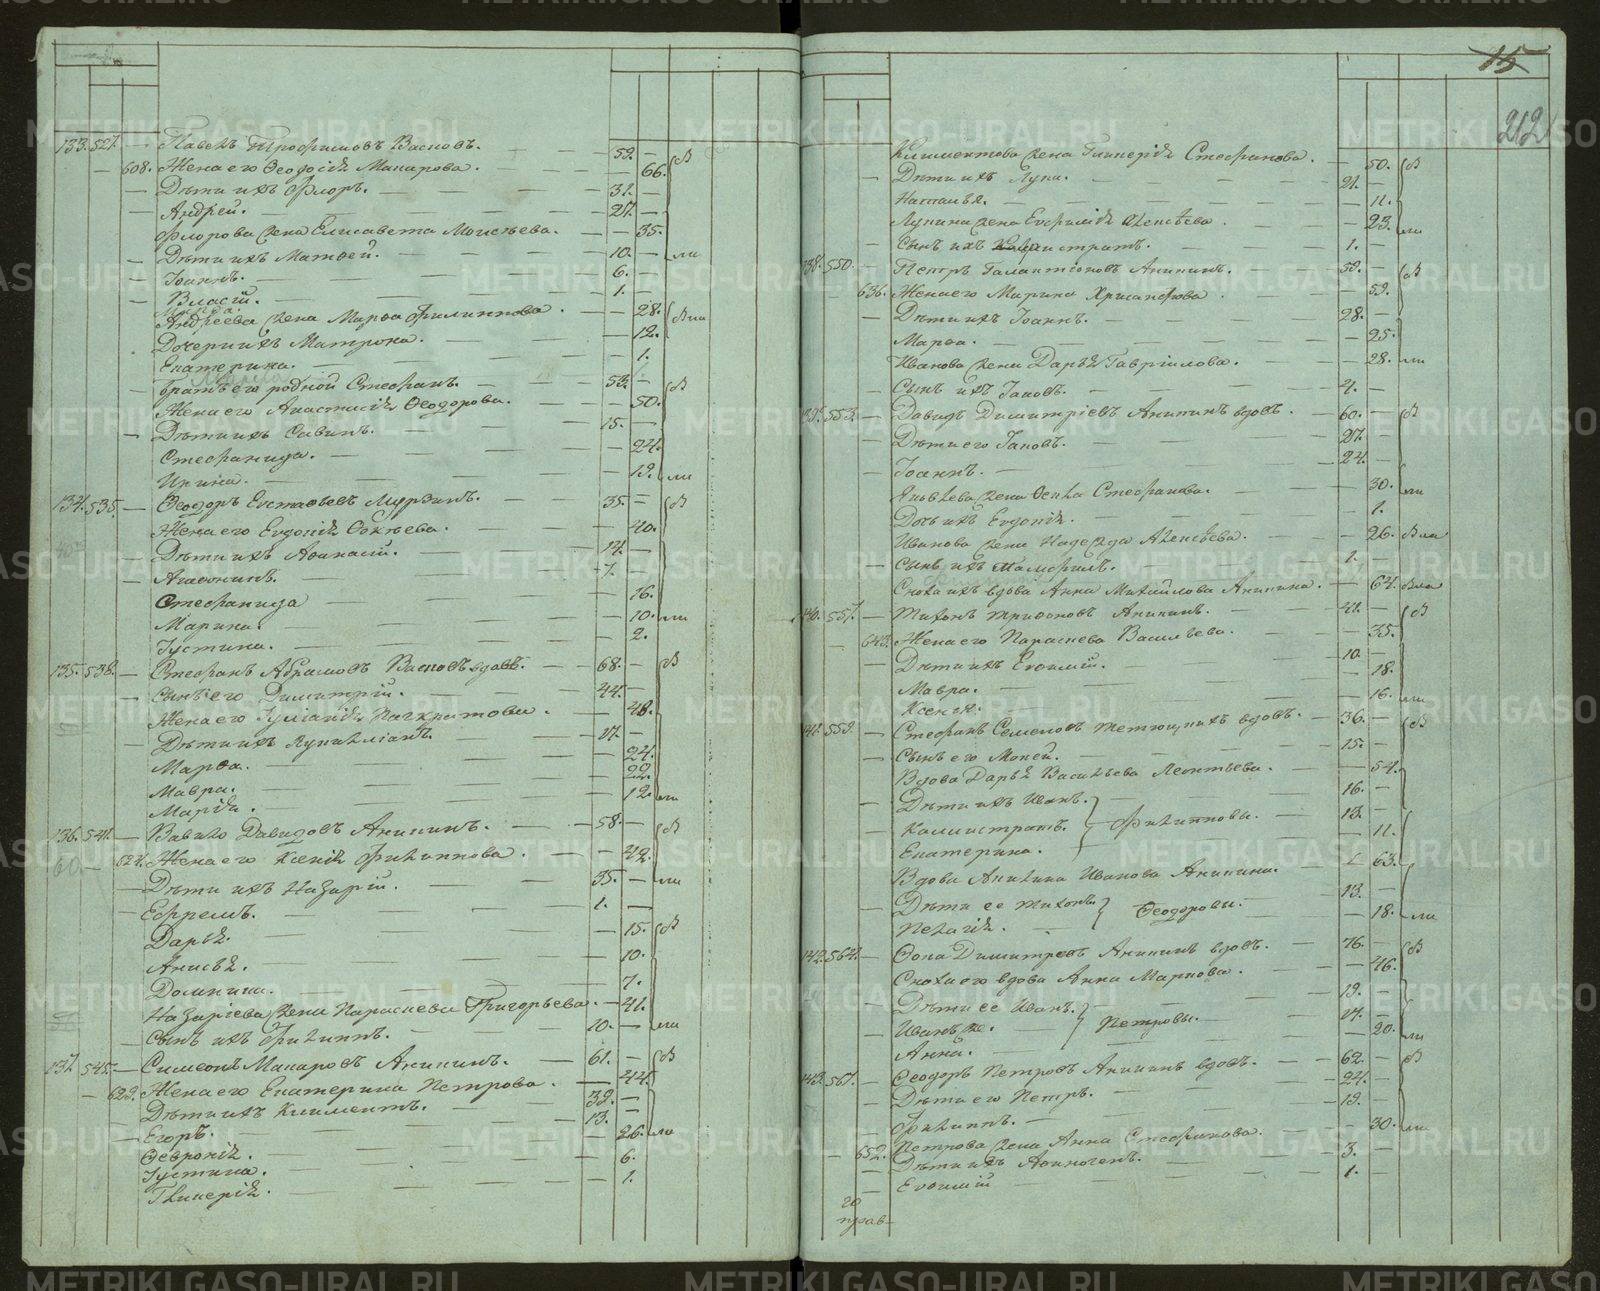 133. 527. Павелъ Трофимовъ Васковъ. 59.
608. Жена его Ѳеодосія Макарова. 66. В
Дѣти ихъ Флоръ. 31.
Андрей. 27.
Флорова жена Елисавета Моисѣева. 35.
Дѣти ихъ Матѳей. 10. ли
Іоаннъ. 6.
Власій. 1.
Андреева жена Марѳа Филиппова. 28. В ли
Дочери ихъ Матрона. 12.
Екатерина. 1.
братъ его родной Стефанъ. 53. В
Жена его Анастасія Ѳеодорова. 50.
Дѣти ихъ Савинъ. 15.
Стефанида. 24.
Ирина. 19. ли
134. 535. Ѳеодоръ Евстаѳьевъ Мурзинъ. 35. В
Жена его Евдокія Ѳокѣева. 40.
Дѣти ихъ Аѳанасій. 14.
Агаѳонинъ. 7.
Стефанида 16.
Марина. 10. ли
Іустина. 2.
135. 538. Стефанъ Абрамовъ Васковъ вдовъ. 68. В
Сынъ его Димитрій. 44.
Жена его Іуліанія Панкратова. 48.
Дѣти ихъ Максиміанъ. 17.
Марѳа. 24.
Мавра. 22.
Марія. 12. ли
136. 541. Вавило Давидовъ Аникинъ. 58. В
60 621. Жена его Ксенія Филиппова. 42.
Дѣти ихъ Назарій. 35. ли
Ефремъ. 1.
Дарья. 15. В
Анисья. 10.
Домнина. 7.
Назаріева жена Параскева Григорьева. 41.
Сынъ ихъ Филиппъ. 10. ли
137 545. Симеонъ Макаровъ Аникинъ. 61. В
623. Жена его Екатерина Петрова. 44.
Дѣти ихъ Климентъ. 39.
Егоръ. 13.
Ѳевронія. 26. ли
Іустина. 6.
Гликерія. 1.
15
212
Климентова жена Гликерія Стефанова. 50. В
Дѣти ихъ Лука. 21.
Наталья. 11.
Лукина жена Евфимія Алексѣева. 23. ли
Сынъ ихъ Каллистратъ. 1.
138. 550. Петръ Галактіоновъ Аникинъ. 59. В
636. Жена его Марина Хрисанфова. 59.
Дѣти ихъ Іоаннъ. 28.
Марѳа. 25.
Иванова жена Дарья Гавріилова. 28. ли
Сынъ ихъ Іаковъ. 4.
139. 553. Давидъ Димитріевъ Аникинъ вдовъ. 60. В
Дѣти его Іаковъ. 27.
Іоаннъ. 24.
Яковлева жена Ѳекла Стефанова. 30. ли
Дочь ихъ Евдокія. 1.
Иванова жена Надежда Алексѣева. 26. В ли
Сынъ ихъ Мамфилъ. 1.
Сноха ихъ вдова Анна Михайлова Аникина. 64. В ли
140. 557. Тихонъ Трифоновъ Аникинъ. 41. В
643. Жена его Параскева Васильева. 35.
Дѣти ихъ Евѳимій. 10.
Мавра. 18.
Ксенія. 16. ли
141. 559. Стефанъ Семеновъ Тетющихъ вдовъ. 36. В
Сынъ его Мокей. 15.
Вдова Дарья Васильева Леонтьева. 54.
Дѣти ихъ Иванъ. 16.
Каллистратъ. Филипповы. 13.
Екатерина. 11.
Вдова Акилина Иванова Аникина. 63.
Дѣти ее Тихонъ. Ѳеодоровы. 13.
Пелагія. 18. ли
142. 564. Ѳока Димитріевъ Аникинъ вдовъ. 76. В
Сноха его вдова Анна Маркова. 46.
Дѣти ее Иванъ. 19.
Иванъ же. Петровы. 17.
Анна. 20. ли
143. 567. Ѳеодоръ Петровъ Аникинъ вдовъ. 62. В
Дѣти его Петръ. 24.
Филиппъ. 19.
652. Петрова жена Анна Стефанова. 30. ли
Дѣти ихъ Аѳиногенъ. 3.
Евѳимій 1.